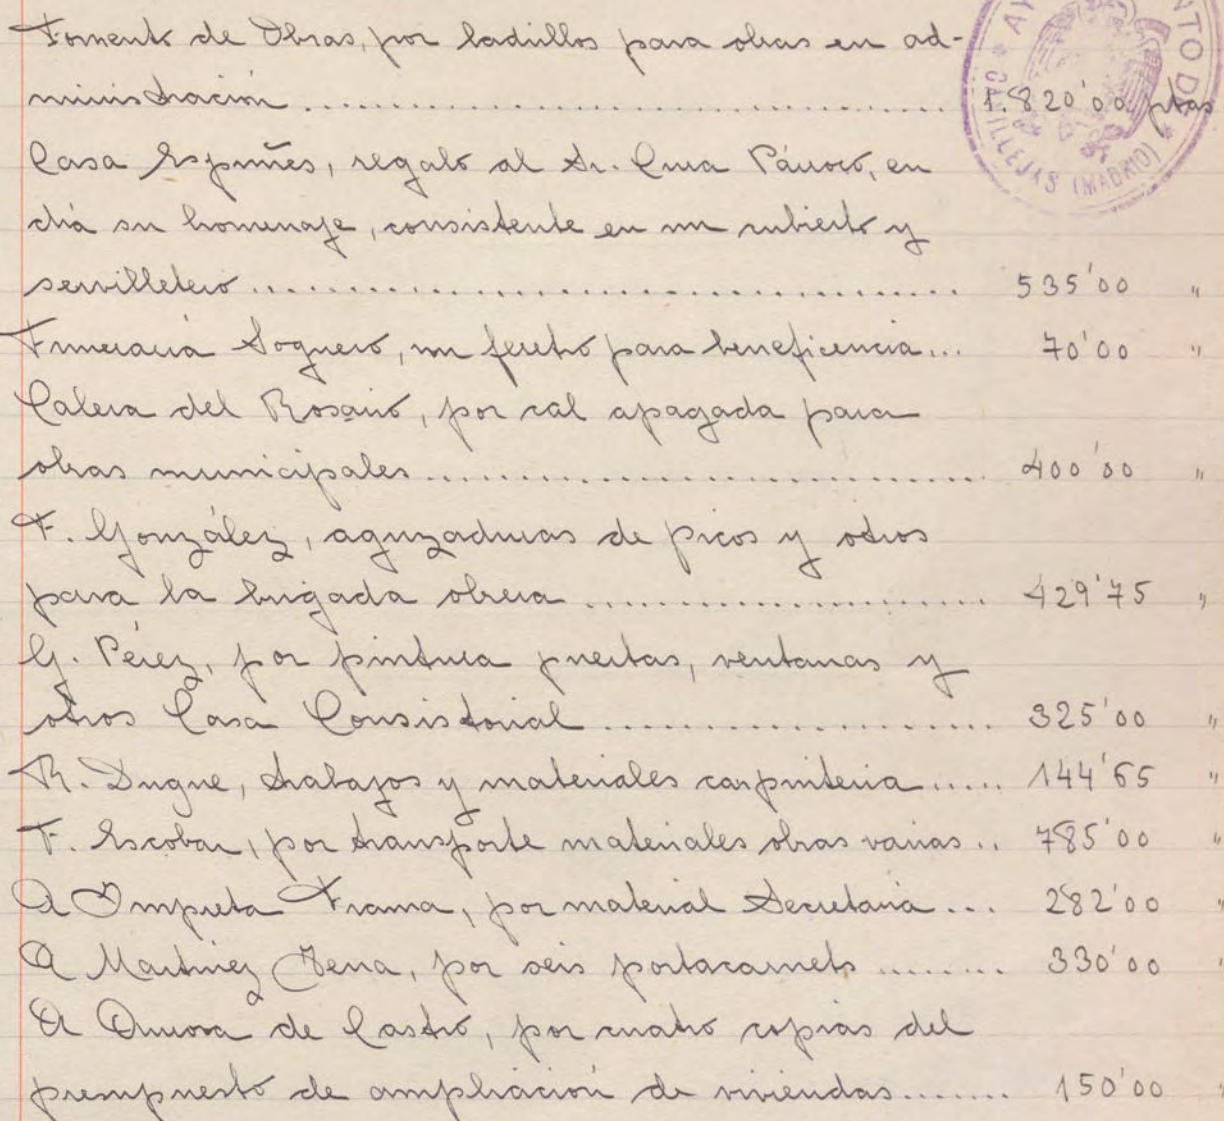 Fomento de Obras, por ladrillos para obras en ad-
ministración .................................... 1.820'00 ptas
Casa Espuñes, regalo al Sr. Cura Párroco, en
día su homenaje, consistente en un cubierto y
servilletero ....................................... 535'00 "
Funeraria Soguero, un feretro para beneficencia... 70'00 "
Calera del Rosario, por cal apagada para
obras municipales ............................... 400'00 "
F. González, aguzaduras de picos y otros
para la brigada obrera ...................... 429'75 "
G. Pérez, por pintura puertas, ventanas y
otros Casa Consistorial ..................... 325'00 "
R. Duque, trabajos y materiales carpinteria ..... 144'65 "
F. Escobar, por transporte materiales obras varias .. 785'00 "
A Impreta Frama, por material Secretaría ... 282'00 "
A Martínez, por seis portacarnets ........ 330'00 "
A Aurora de Castro, por cuatro copias del
presupuesto de ampliación de viviendas ....... 150'00 "
AY NTO DE
CANILLEJAS (MADRID)